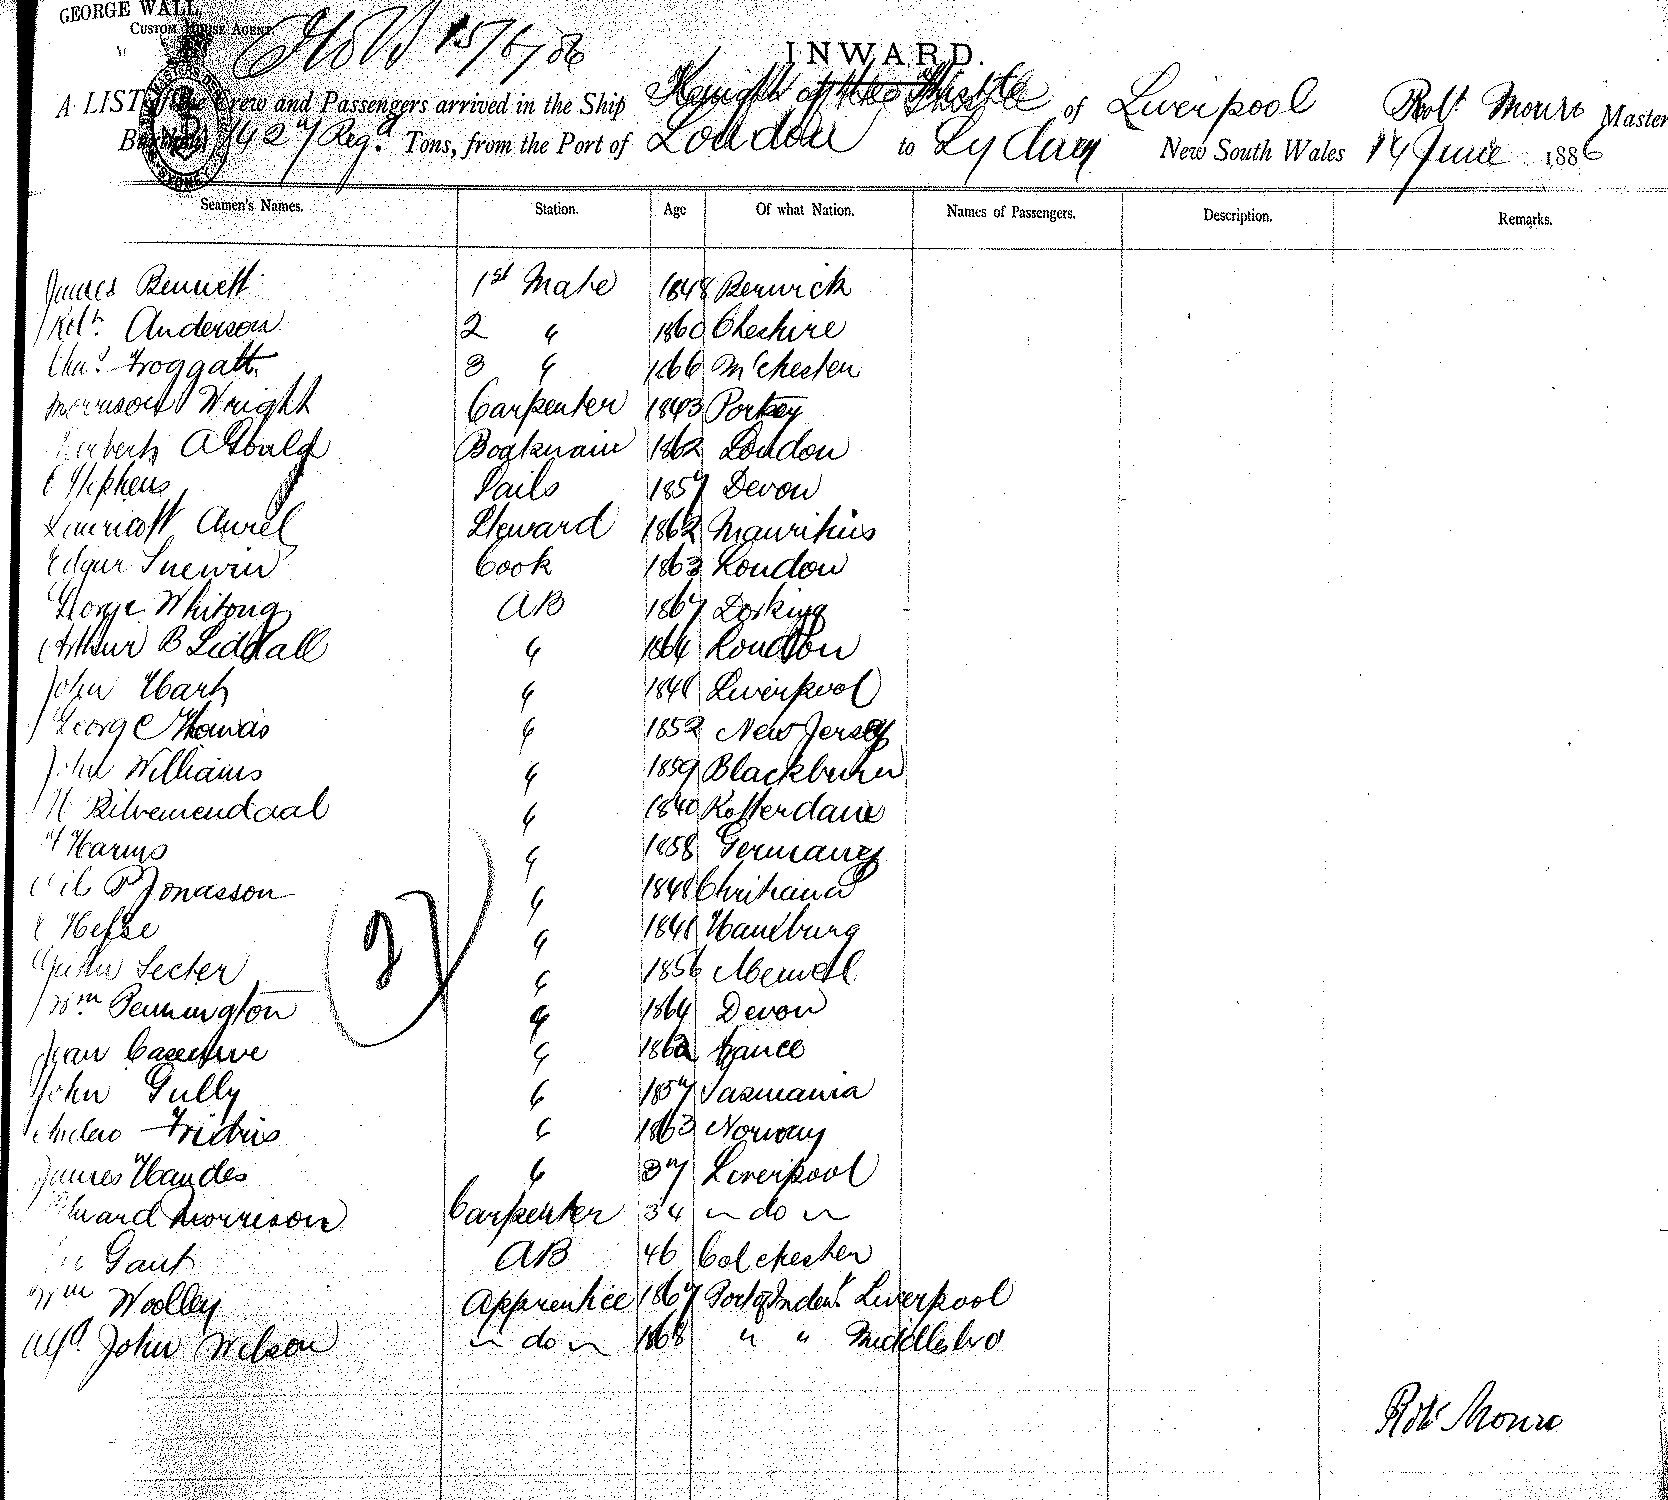 GEORGE WALL
CUSTOM HOUSE AGENT
15/6/86
INWARD.
A LIST of the Crew and Passengers arrived in the Ship Knight of the Thistle of Liverpool Robt Monro Master
Burthen Regd. Tons, from the Port of London to Sydney New South Wales 14 June 1886
Seamen's Names. Station. Age Of what Nation. Names of Passengers. Description. Remarks.
James Bennett 1st Mate 1848 Berwick
Robt. Anderson 2 " 1860 Cheshire
Chas. Froggatt 3 " 1866 McChester
Morrison Wright Carpenter 1843
Herbert Boatswain 1862 London
Stephens Sails 1857 Devon
Aurel Steward 1862 Mauritius
Edgar Snewin Cook 1863 London
George AB 1867 Dorking
Arthur B Liddall " 1864 London
John Hart " 1848 Liverpool
George Thomas " 1852 New Jersey
John Williams " 1859 Blackburn
" 1840 Rotterdam
Harms " 1858 Germany
P Jonasson " 1848 Christiana
" 1841 Hamburg
Secter " 1856 Memel
Wm Pennington " 1864 Devon
Jean " 1862 France
John Gully " 1857 Tasmania
" 1863 Norway
James Handes " 37 Liverpool
Edward Morrison Carpenter 34 " do "
Gant AB 46 Colchester
Wm Woolley Apprentice 1867 Port of Indent. Liverpool
Alfd. John Wilson " do " 1868 " " Middlesbro
27
Robt Monro